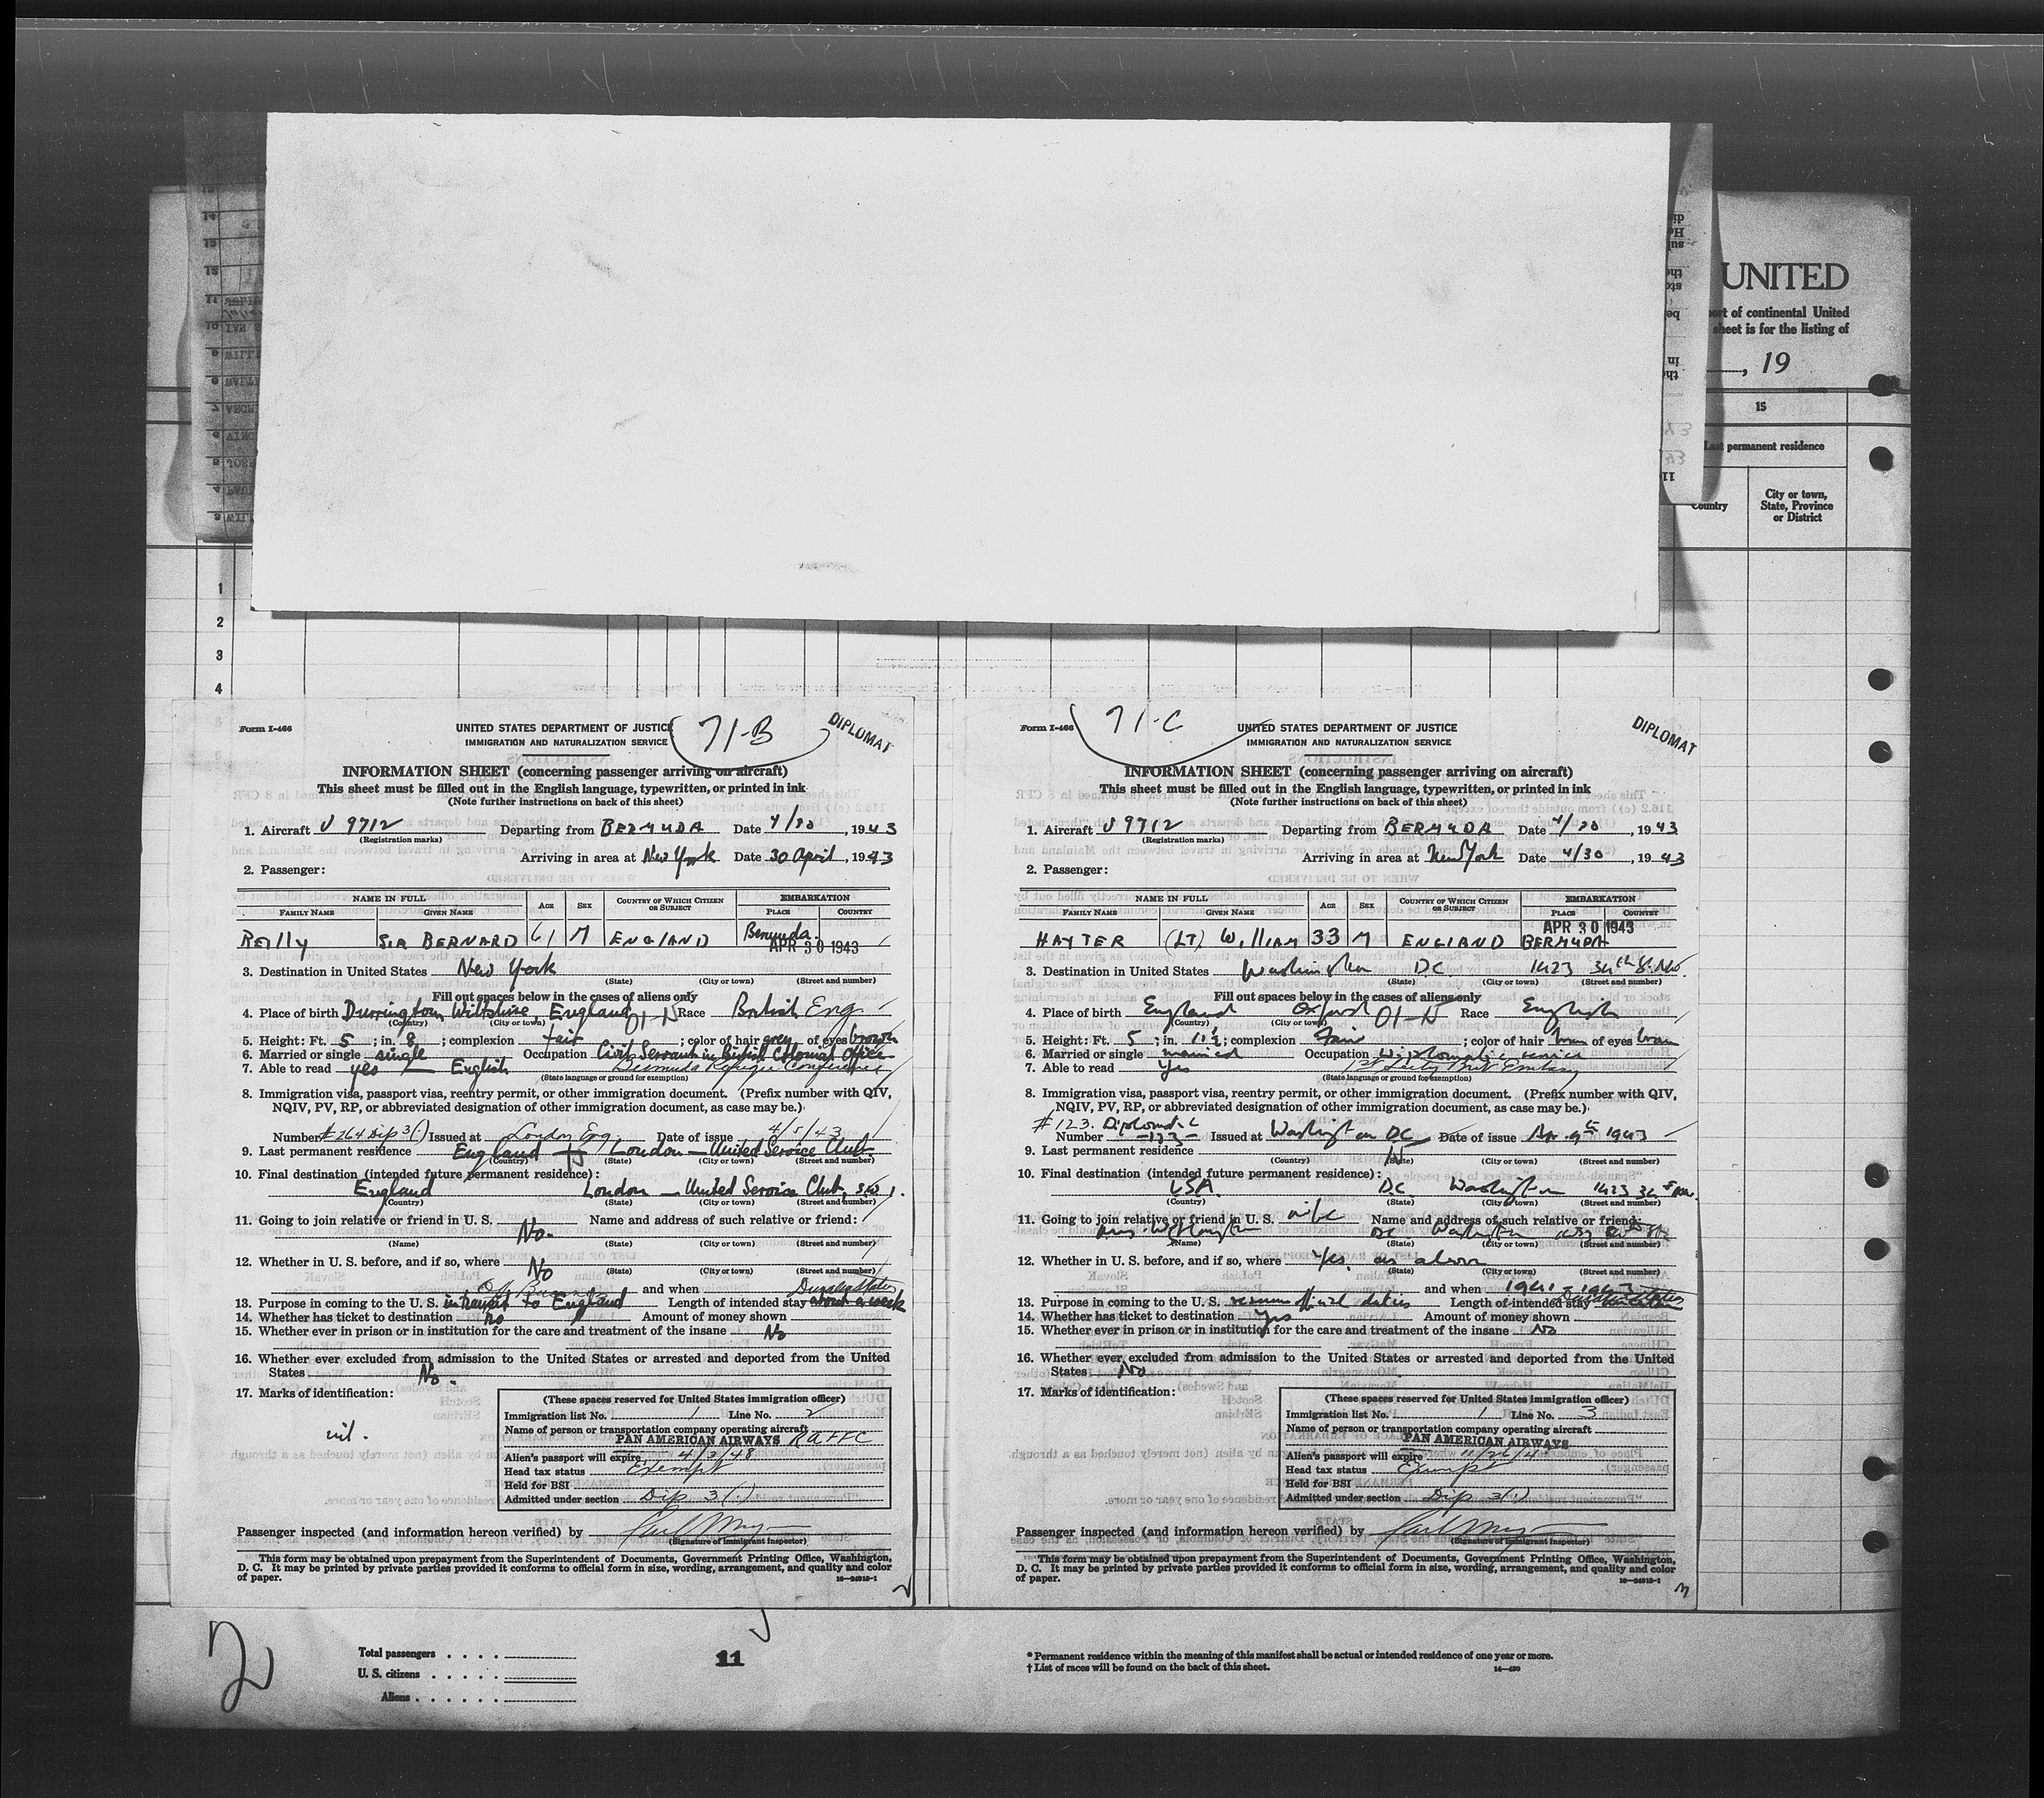 UNITED
port of continental United
sheet is for the listing of
, 19
15
Last permanent residence
Country
City or town,
State, Province
or District
1
2
3
4
Form I-466
UNITED STATES DEPARTMENT OF JUSTICE
IMMIGRATION AND NATURALIZATION SERVICE
71-B
DIPLOMAT
INFORMATION SHEET (concerning passenger arriving on aircraft)
This sheet must be filled out in the English language, typewritten, or printed in ink
(Note further instructions on back of this sheet)
1. Aircraft V 9712 Departing from BERMUDA Date 4/30, 1943
(Registration marks)
Arriving in area at New York Date 30 April, 1943
2. Passenger:
NAME IN FULL AGE SEX COUNTRY OF WHICH CITIZEN OR SUBJECT EMBARKATION
FAMILY NAME GIVEN NAME PLACE COUNTRY
REILLY SIR BERNARD 61 M ENGLAND Bermuda.
APR 30 1943
3. Destination in United States New York
(State) (City or town) (Street and number)
Fill out spaces below in the cases of aliens only
4. Place of birth Durrington, Wiltshire, England 01-N Race British Eng
(Country) (City or town)
5. Height: Ft. 5; in. 8; complexion fair; color of hair grey of eyes brown
6. Married or single single Occupation Civil Servant in British Colonial Office
7. Able to read yes English Bermuda Refugee Conference
(State language or ground for exemption)
8. Immigration visa, passport visa, reentry permit, or other immigration document. (Prefix number with QIV,
NQIV, PV, RP, or abbreviated designation of other immigration document, as case may be.)
Number #264 Dip 3(1) Issued at London Eng. Date of issue 4/5/43
9. Last permanent residence England London — United Service Club.
(Country) (State) (City or town) (Street and number)
10. Final destination (intended future permanent residence):
England London — United Service Club, S.W.1.
(Country) (State) (City or town) (Street and number)
11. Going to join relative or friend in U. S. No. Name and address of such relative or friend:
(Name) (State) (City or town) (Street and number)
12. Whether in U. S. before, and if so, where No
(State) (City or town) (Street and number)
and when
13. Purpose in coming to the U. S. in transit to England Length of intended stay about a week
14. Whether has ticket to destination no Amount of money shown
15. Whether ever in prison or in institution for the care and treatment of the insane No
16. Whether ever excluded from admission to the United States or arrested and deported from the United
States No.
17. Marks of identification:
nil.
(These spaces reserved for United States immigration officer)
Immigration list No. 1 Line No. 2
Name of person or transportation company operating aircraft
PAN AMERICAN AIRWAYS
Alien's passport will expire 4/3/48
Head tax status Exempt
Held for BSI
Admitted under section Dip 3(1)
Passenger inspected (and information hereon verified) by
(Signature of immigrant inspector)
This form may be obtained upon prepayment from the Superintendent of Documents, Government Printing Office, Washington,
D. C. It may be printed by private parties provided it conforms to official form in size, wording, arrangement, and quality and color
of paper.
16—24915-1
Form I-466
71-C
UNITED STATES DEPARTMENT OF JUSTICE
IMMIGRATION AND NATURALIZATION SERVICE
DIPLOMAT
INFORMATION SHEET (concerning passenger arriving on aircraft)
This sheet must be filled out in the English language, typewritten, or printed in ink
(Note further instructions on back of this sheet)
1. Aircraft V 9712 Departing from BERMUDA Date 4/30, 1943
(Registration marks)
Arriving in area at New York Date 4/30, 1943
2. Passenger:
NAME IN FULL AGE SEX COUNTRY OF WHICH CITIZEN OR SUBJECT EMBARKATION
FAMILY NAME GIVEN NAME PLACE COUNTRY
APR 30 1943
HAYTER (LT) William 33 M ENGLAND BERMUDA
3. Destination in United States Washington D.C. 1423 34th St. NW.
(State) (City or town) (Street and number)
Fill out spaces below in the cases of aliens only
4. Place of birth England Oxford 01-N Race English
(Country) (City or town)
5. Height: Ft. 5; in. 11½; complexion Fair; color of hair brown of eyes brown
6. Married or single married Occupation Diplomatic service
7. Able to read Yes 1st Secty Brit Embassy
(State language or ground for exemption)
8. Immigration visa, passport visa, reentry permit, or other immigration document. (Prefix number with QIV,
NQIV, PV, RP, or abbreviated designation of other immigration document, as case may be.)
#123. Diplomatic
Number —123— Issued at Washington DC Date of issue Apr. 9th 1943
9. Last permanent residence
(Country) (State) (City or town) (Street and number)
10. Final destination (intended future permanent residence):
USA. D.C. Washington 1423 34th NW.
(Country) (State) (City or town) (Street and number)
11. Going to join relative or friend in U. S. wife Name and address of such relative or friend:
DC Washington
(Name) (State) (City or town) (Street and number)
12. Whether in U. S. before, and if so, where Yes. as above
(State) (City or town) (Street and number)
and when 1941 - 1943
13. Purpose in coming to the U. S. resume official duties Length of intended stay
14. Whether has ticket to destination Yes Amount of money shown
15. Whether ever in prison or in institution for the care and treatment of the insane No
16. Whether ever excluded from admission to the United States or arrested and deported from the United
States No
17. Marks of identification:
(These spaces reserved for United States immigration officer)
Immigration list No. 1 Line No. 3
Name of person or transportation company operating aircraft
PAN AMERICAN AIRWAYS
Alien's passport will expire
Head tax status Exempt
Held for BSI
Admitted under section Dip 3(1)
Passenger inspected (and information hereon verified) by
(Signature of immigrant inspector)
This form may be obtained upon prepayment from the Superintendent of Documents, Government Printing Office, Washington,
D. C. It may be printed by private parties provided it conforms to official form in size, wording, arrangement, and quality and color
of paper.
16—24915-1
2
Total passengers . . . .
U. S. citizens . . . . .
Aliens . . . . . .
11
* Permanent residence within the meaning of this manifest shall be actual or intended residence of one year or more.
† List of races will be found on the back of this sheet.